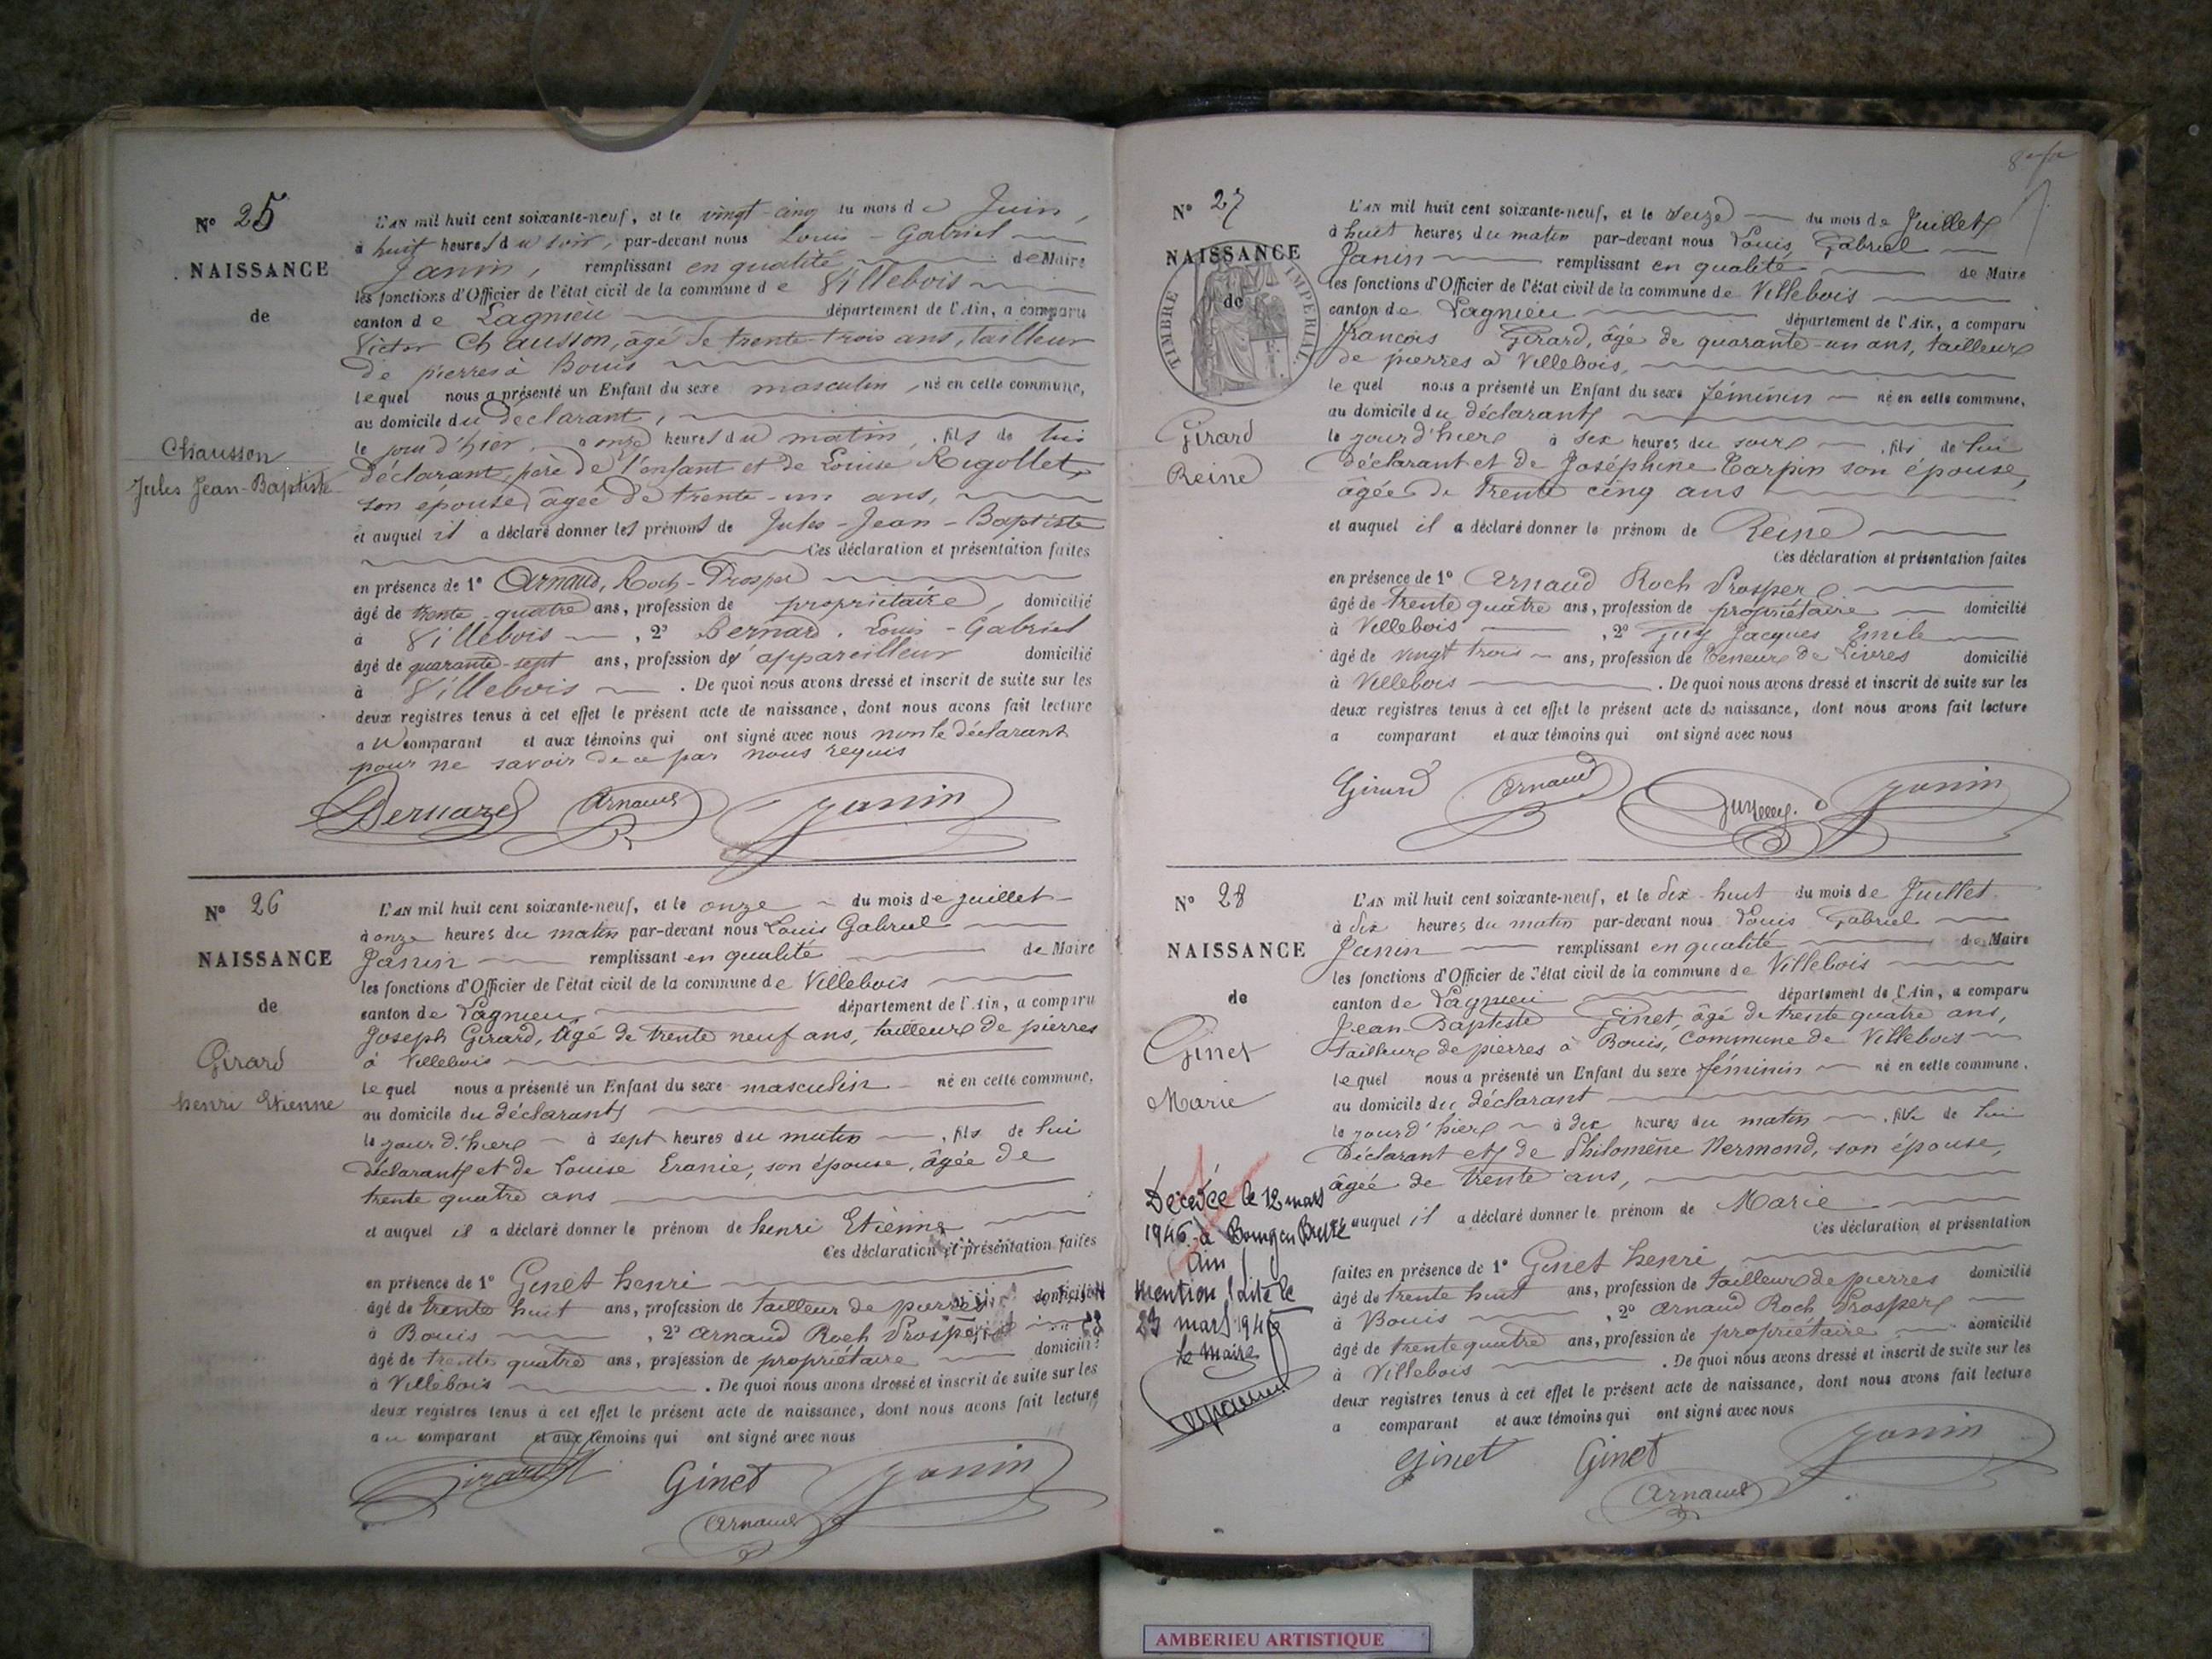 N° 25
NAISSANCE
de
Chausson
Jules Jean-Baptiste
L'AN mil huit cent soixante-neuf, et le vingt-cinq du mois de Juin,
à huit heures du soir, par-devant nous Louis-Gabriel
Janin, remplissant en qualité de Maire
les fonctions d'Officier de l'état civil de la commune de Villebois
canton de Lagnieu département de l'Ain, a comparu
Victor Chausson, âgé de trente-trois ans, tailleur
de pierres à Bouis
lequel nous a présenté un Enfant du sexe masculin, né en cette commune,
au domicile du déclarant,
le jour d'hier à onze heures du matin, fils de lui
déclarant, père de l'enfant et de Louise Rigollet,
son épouse, âgée de trente-un ans,
et auquel il a déclaré donner les prénoms de Jules-Jean-Baptiste
Ces déclaration et présentation faites
en présence de 1° Arnaud, Roch-Prosper
âgé de trente-quatre ans, profession de propriétaire, domicilié
à Villebois, 2° Bernard, Louis-Gabriel
âgé de quarante-sept ans, profession d'appareilleur domicilié
à Villebois. De quoi nous avons dressé et inscrit de suite sur les
deux registres tenus à cet effet le présent acte de naissance, dont nous avons fait lecture
au comparant et aux témoins qui ont signé avec nous non le déclarant
pour ne savoir de ce par nous requis
Arnaud Janin
N° 26
NAISSANCE
de
Girard
henri Etienne
L'AN mil huit cent soixante-neuf, et le onze du mois de juillet
à onze heures du matin par-devant nous Louis Gabriel
Janin remplissant en qualité de Maire
les fonctions d'Officier de l'état civil de la commune de Villebois
canton de Lagnieu département de l'Ain, a comparu
Joseph Girard, âgé de trente neuf ans, tailleur de pierres
à Villebois
lequel nous a présenté un Enfant du sexe masculin né en cette commune,
au domicile du déclarant
le jour d'hier à sept heures du matin, fils de lui
déclarant et de Louise Eranie, son épouse, âgée de
trente quatre ans
et auquel il a déclaré donner le prénom de henri Etienne
Ces déclaration et présentation faites
en présence de 1° Ginet henri
âgé de trente huit ans, profession de tailleur de pierres domicilié
à Bouis, 2° Arnaud Roch Prosper
âgé de trente quatre ans, profession de propriétaire domicilié
à Villebois. De quoi nous avons dressé et inscrit de suite sur les
deux registres tenus à cet effet le présent acte de naissance, dont nous avons fait lecture
au comparant et aux témoins qui ont signé avec nous
Girard Ginet Janin
Arnaud
N° 27
NAISSANCE
de
TIMBRE IMPERIAL
Girard
Reine
L'AN mil huit cent soixante-neuf, et le seize du mois de Juillet
à huit heures du matin par-devant nous Louis Gabriel
Janin remplissant en qualité de Maire
les fonctions d'Officier de l'état civil de la commune de Villebois
canton de Lagnieu département de l'Ain, a comparu
françois Girard, âgé de quarante-un ans, tailleur
de pierres à Villebois,
lequel nous a présenté un Enfant du sexe féminin né en cette commune,
au domicile du déclarant
le jour d'hier à six heures du soir, fils de lui
déclarant et de Joséphine Tarpin son épouse,
âgée de Trente cinq ans
et auquel il a déclaré donner le prénom de Reine
Ces déclaration et présentation faites
en présence de 1° Arnaud Roch Prosper
âgé de trente quatre ans, profession de propriétaire domicilié
à Villebois, 2° Guy Jacques Emile
âgé de vingt trois ans, profession de Teneur de Livres domicilié
à Villebois. De quoi nous avons dressé et inscrit de suite sur les
deux registres tenus à cet effet le présent acte de naissance, dont nous avons fait lecture
a comparant et aux témoins qui ont signé avec nous
Girard Arnaud Janin
N° 28
NAISSANCE
de
Ginet
Marie
Décédée le 12 mars
1946 à Bourg en Bresse
Ain
Mention faite le
23 mars 1946
Le Maire
L'AN mil huit cent soixante-neuf, et le dix-huit du mois de Juillet
à dix heures du matin par-devant nous Louis Gabriel
Janin remplissant en qualité de Maire
les fonctions d'Officier de l'état civil de la commune de Villebois
canton de Lagnieu département de l'Ain, a comparu
Jean-Baptiste Ginet, âgé de trente quatre ans,
tailleur de pierres à Bouis, Commune de Villebois
lequel nous a présenté un Enfant du sexe féminin né en cette commune,
au domicile du déclarant
le jour d'hier à dix heures du matin, fille de lui
Déclarant et de Philomène Mermond, son épouse,
âgée de trente ans,
et auquel il a déclaré donner le prénom de Marie
Ces déclaration et présentation
faites en présence de 1° Ginet henri
âgé de trente huit ans, profession de tailleur de pierres domicilié
à Bouis, 2° Arnaud Roch Prosper
âgé de trente quatre ans, profession de propriétaire domicilié
à Villebois. De quoi nous avons dressé et inscrit de suite sur les
deux registres tenus à cet effet le présent acte de naissance, dont nous avons fait lecture
a comparant et aux témoins qui ont signé avec nous
Ginet Ginet Janin
Arnaud
AMBERIEU ARTISTIQUE